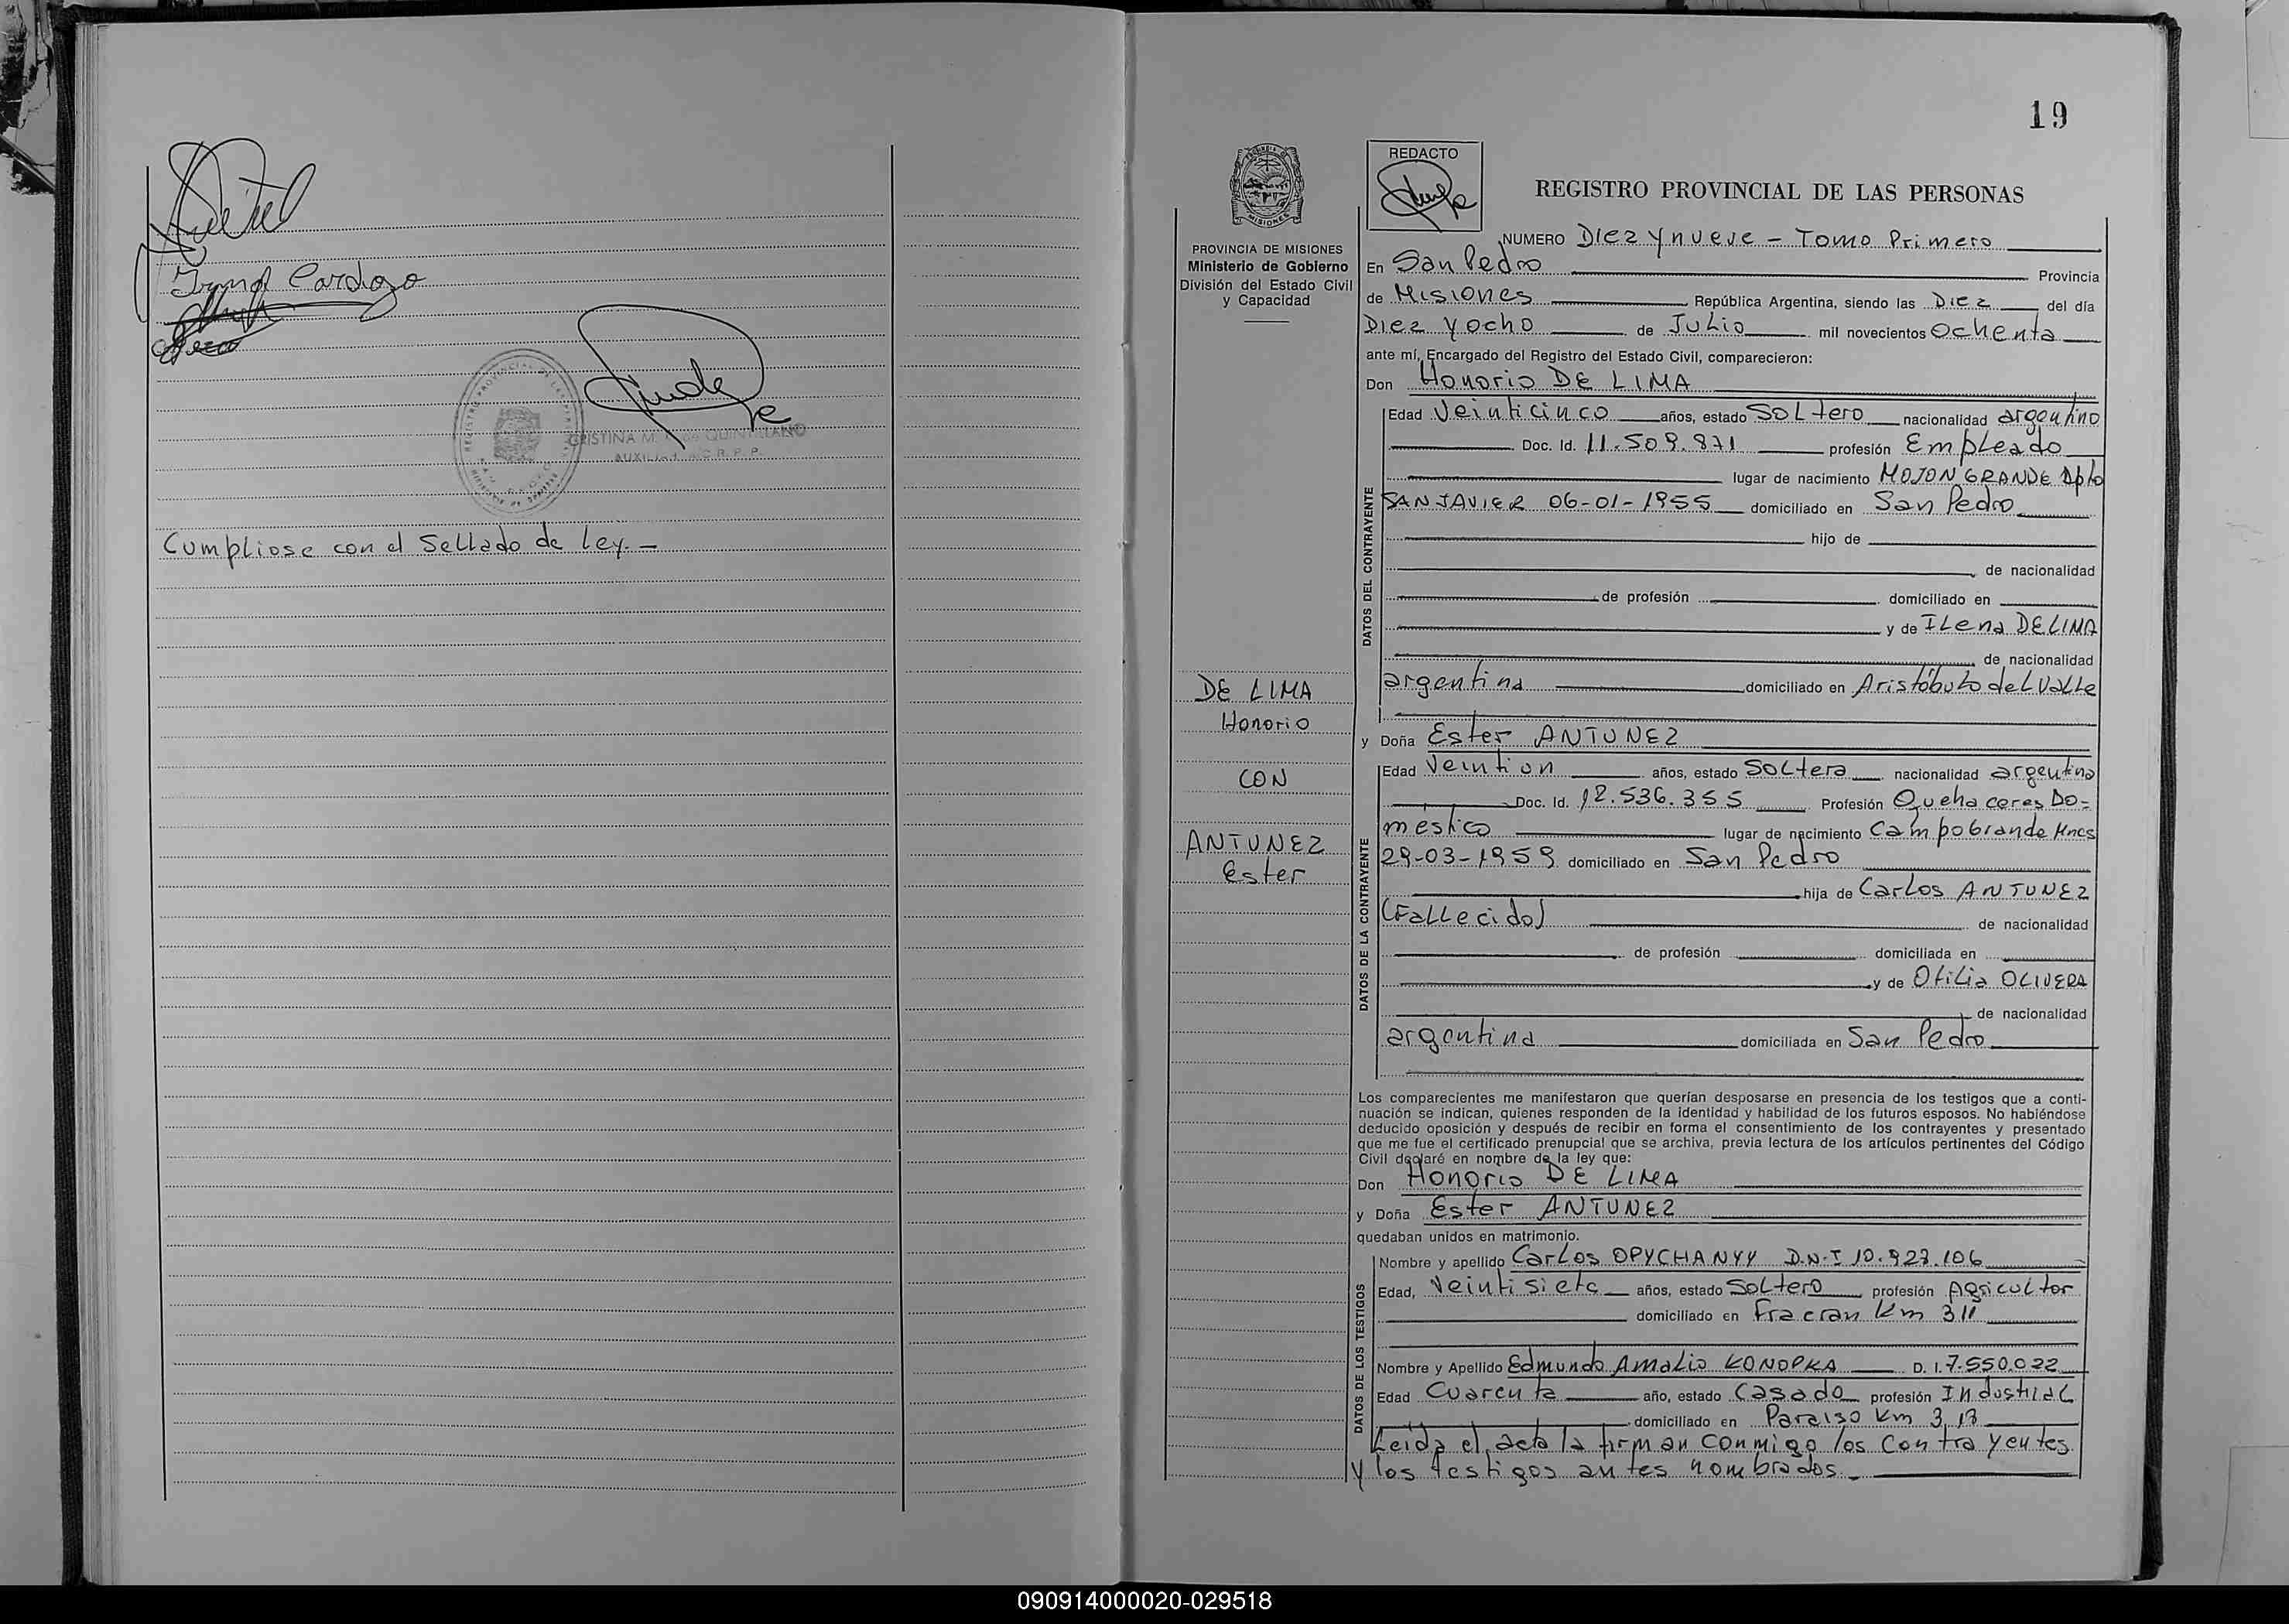 Irma Cardozo
CRISTINA M. QUINTILLANO
AUXILIAR R. P. P.
Cumpliose con el Sellado de Ley.-
19
REDACTO
REGISTRO PROVINCIAL DE LAS PERSONAS
PROVINCIA DE MISIONES
Ministerio de Gobierno
División del Estado Civil
y Capacidad
NUMERO Diez y nueve - Tomo Primero
En San Pedro Provincia
de Misiones República Argentina, siendo las Diez del día
Diez y ocho de Julio mil novecientos Ochenta
ante mí, Encargado del Registro del Estado Civil, comparecieron:
Don Honorio DE LIMA
DATOS DEL CONTRAYENTE
Edad Veinticinco años, estado Soltero nacionalidad argentino
Doc. Id. 11.509.871 profesión Empleado
lugar de nacimiento MOJON GRANDE Dpto
SAN JAVIER 06-01-1955 domiciliado en San Pedro
hijo de
de nacionalidad
de profesión domiciliado en
y de ILena DE LIMA
de nacionalidad
argentina domiciliado en Aristóbulo del Valle
DE LIMA
Honorio
CON
ANTUNEZ
Ester
y Doña Ester ANTUNEZ
DATOS DE LA CONTRAYENTE
Edad Veintiun años, estado Soltera nacionalidad argentina
Doc. Id. 12.536.355 Profesión Quehaceres Do-
mestico lugar de nacimiento Campo Grande Mnes
29-03-1959 domiciliado en San Pedro
hija de Carlos ANTUNEZ
(Fallecido) de nacionalidad
de profesión domiciliada en
y de Otilia OLIVERA
de nacionalidad
argentina domiciliada en San Pedro
Los comparecientes me manifestaron que querían desposarse en presencia de los testigos que a conti-
nuación se indican, quienes responden de la identidad y habilidad de los futuros esposos. No habiéndose
deducido oposición y después de recibir en forma el consentimiento de los contrayentes y presentado
que me fue el certificado prenupcial que se archiva, previa lectura de los artículos pertinentes del Código
Civil declaré en nombre de la ley que:
Don Honorio DE LIMA
y Doña Ester ANTUNEZ
quedaban unidos en matrimonio.
DATOS DE LOS TESTIGOS
Nombre y apellido Carlos OPYCHANYY D.N.I 10.923.106
Edad, Veintisiete años, estado Soltero profesión Agricultor
domiciliado en Fracran Km 311
Nombre y Apellido Edmundo Amalio KONOPKA D. I. 7.550.022
Edad Cuarenta año, estado Casado profesión Industrial
domiciliado en Paraiso Km 313
Leida el acta la firman conmigo los contrayentes
y los testigos antes nombrados.-
090914000020-029518